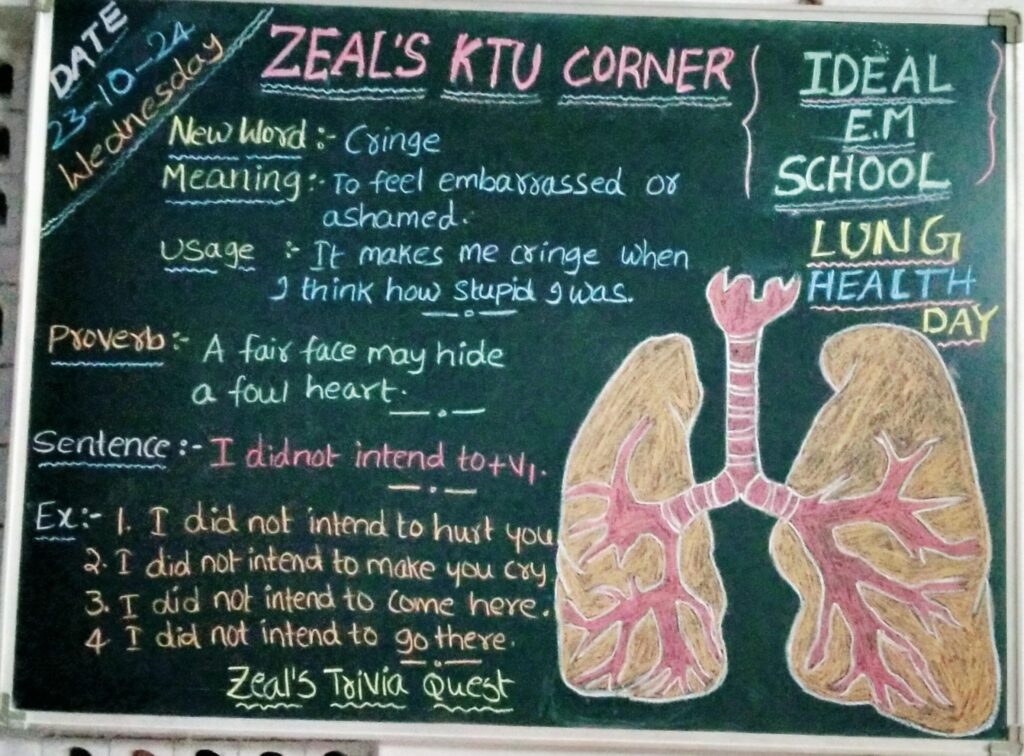 DATE
23-10-24
Wednesday
ZEAL'S KTU CORNER
IDEAL
E.M
SCHOOL
LUNG
HEALTH
DAY
New Word :- Cringe
Meaning :- To feel embarrassed or
ashamed.
Usage :- It makes me cringe when
I think how stupid I was.
Proverb :- A fair face may hide
a foul heart.
Sentence :- I didnot intend to+V1.
Ex :- 1. I did not intend to hurt you
2. I did not intend to make you cry
3. I did not intend to come here.
4 I did not intend to go there.
Zeal's Trivia Quest